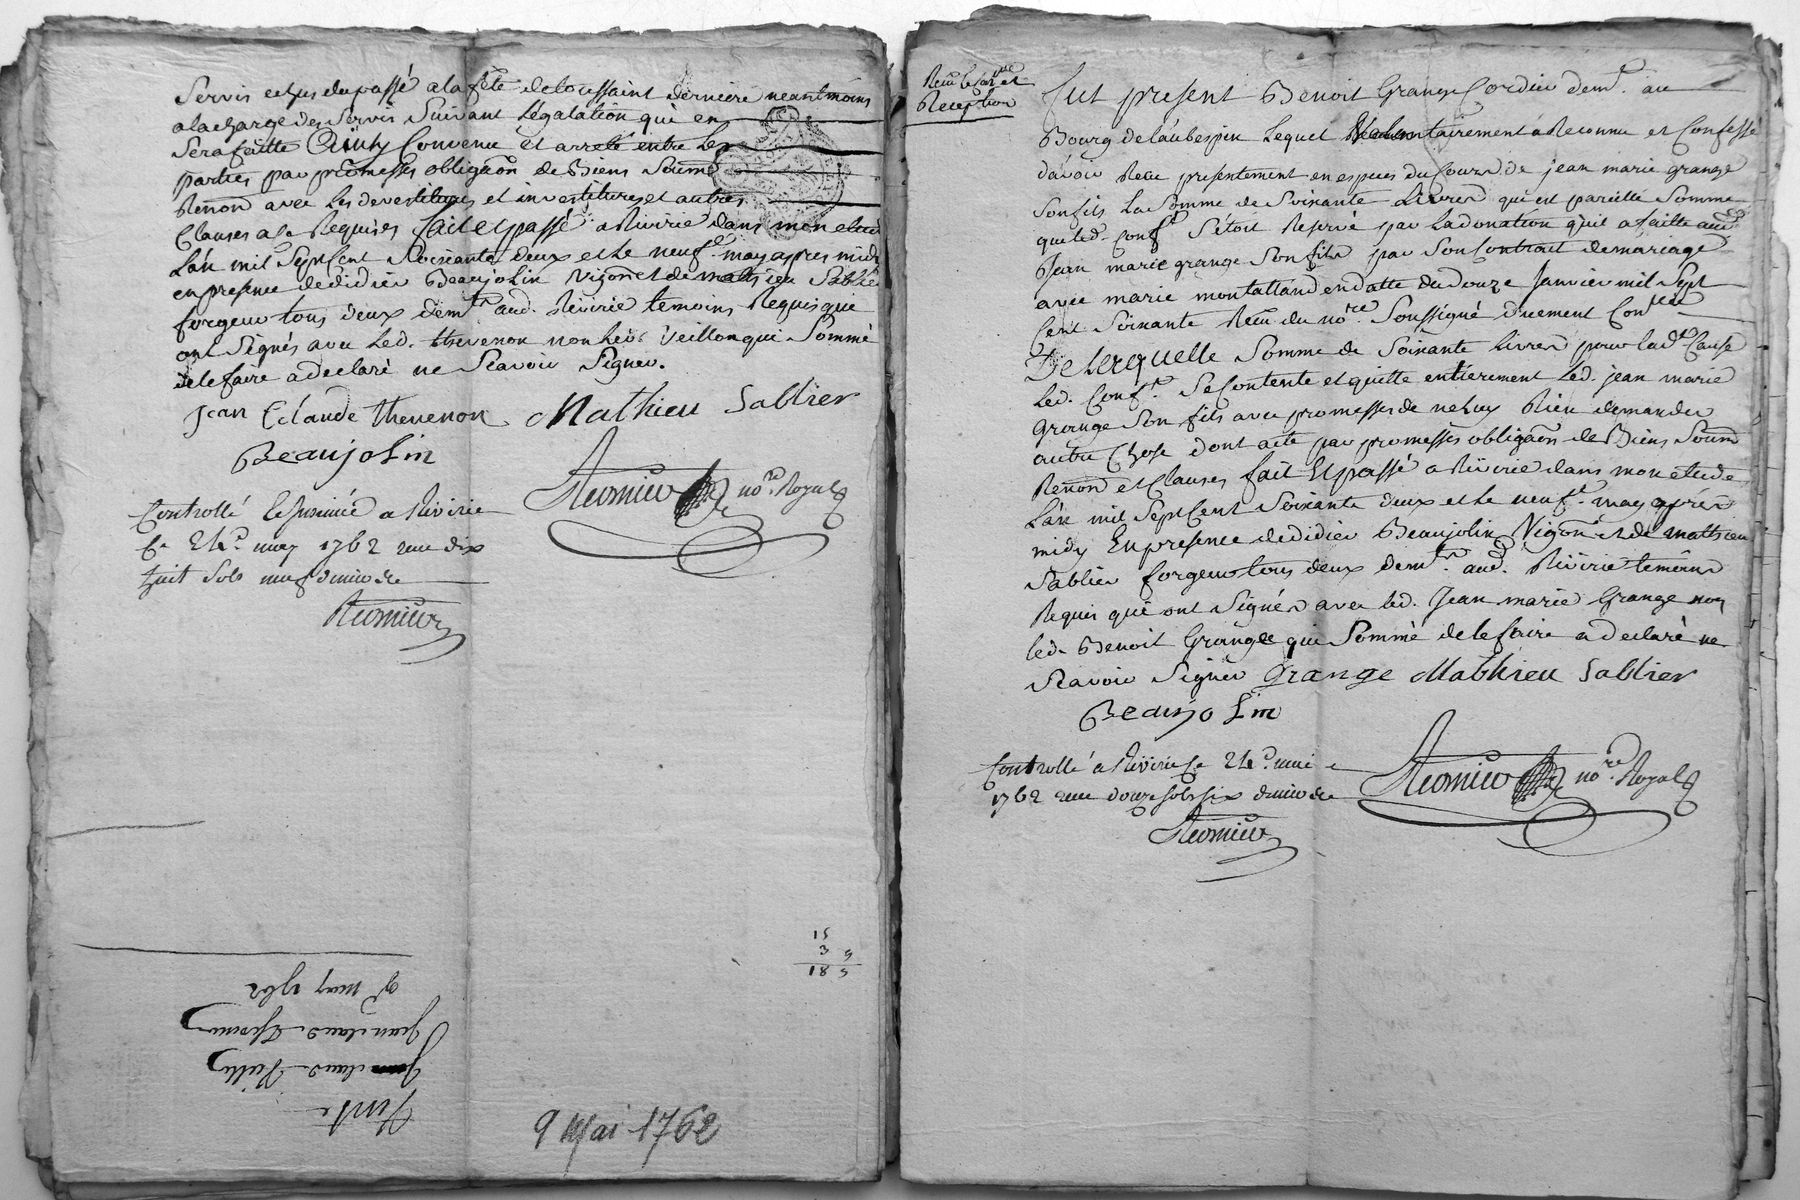 Servis echus du passé a la fete de toussaint derniere neantmoins
a la charge des Servis Suivant l'égalation qui en
Sera faitte Ainsy Convenu et arreté entre les
parties par promesses obligaõn de Biens Soumõ
Renonõ avec les devestitures et investitures et autres
Clauses a ce Requises fait et passé a Riverie dans mon etude
L'an mil Sept Cent Soixante deux et le neufe. may apres midy
en presence de didier Beaujolin Vigon et de mathieu Sablier
forgeur tous deux demts. aud. Riverie temoins Requis qui
ont Signés avec led. thevenon non led. Veillon qui Sommé
de le faire a declaré ne Scavoir Signer.
Jean Claude thevenon Mathieu Sablier
Beaujolin
nore. Royal
Controllé a Riverie
le 24e. may 1762 reçu dix
huit sols neuf deniers
15
3 9
18 9
9e may 1762
Jean claude
Jean claude
Vente
9 Mai 1762
Reception
Fut present Benoit Grange Cordier demt. au
Bourg de l'aubespin Lequel Volontairement a Reconnu et Confessé
d'avoir Receu presentement en especes du Cours de jean marie grange
Son fils La Somme de Soixante Livres qui est pareille Somme
que led. Conft. S'étoit Reservé par La donation qu'il a faitte aud.
Jean marie grange Son fils par Son Contrait de mariage
avec marie montalland en datte du douze Janvier mil Sept
Cent Soixante Receu du nore. Soussigné duement Conlée
De Lacquelle Somme de Soixante Livres pour lade. Cause
Led. Conft. Se Contente et quitte entierement Led. jean marie
grange Son fils avec promesses de ne luy Rien demander
autre Chose dont acte par promesses obligaõn de Biens Soumõ
Renonõ et Clauses fait Et passé a Riverie dans mon etude
L'an mil Sept Cent Soixante deux et le neufe. may apres
midy En presence de didier Beaujolin Vigon et de mathieu
Sablier forgeur tous deux demts. aud. Riverie temoins
Requis qui ont Signés avec led. Jean marie Grange non
led. Benoit Grange qui Sommé de le faire a declaré ne
Scavoir Signer Grange Mathieu Sablier
Beaujolin
Controllé a Riverie le 24e. mai
1762 reçu douze sols six deniers
nore. Royal